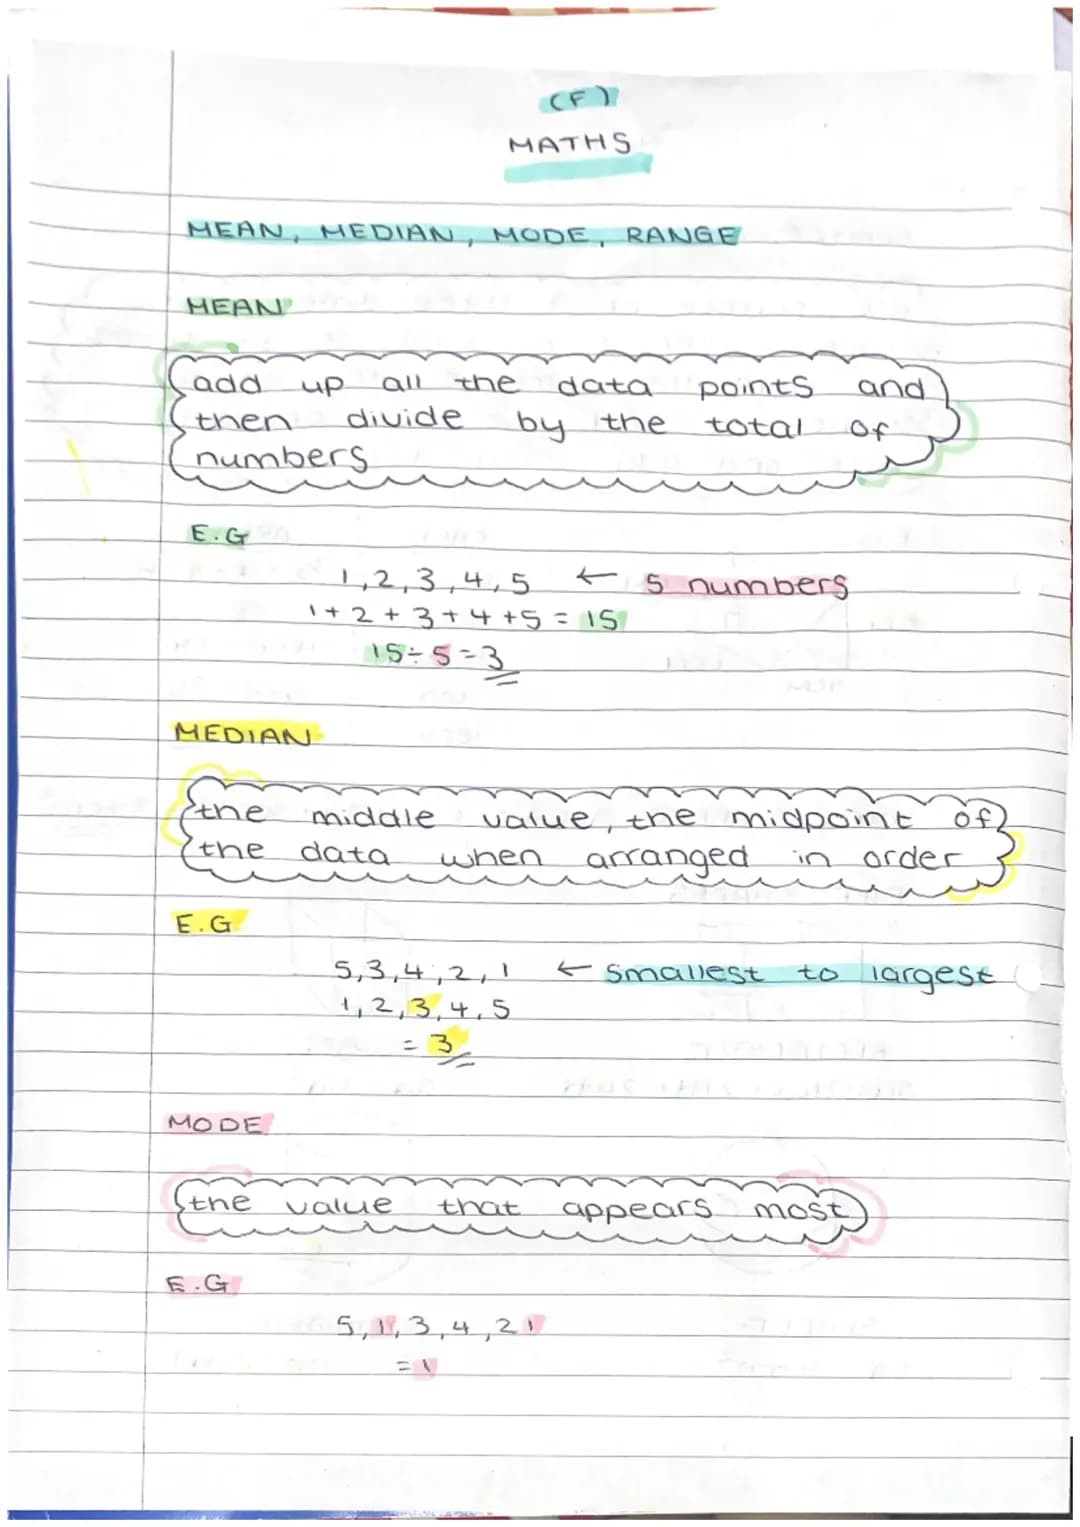 (F)
MATHS
MEAN, MEDIAN, MODE, RANGE
MEAN
add up all the data points and
then divide by the total of
numbers
E.G
1,2,3,4,5 ← 5 numbers
1+2+3+4+5 = 15
15÷5=3
MEDIAN
the middle value, the midpoint of
the data when arranged in order
E.G
5,3,4,2,1 ← smallest to largest
1,2,3,4,5
= 3
MODE
the value that appears most
E.G
5,1,3,4,2 1
= 1